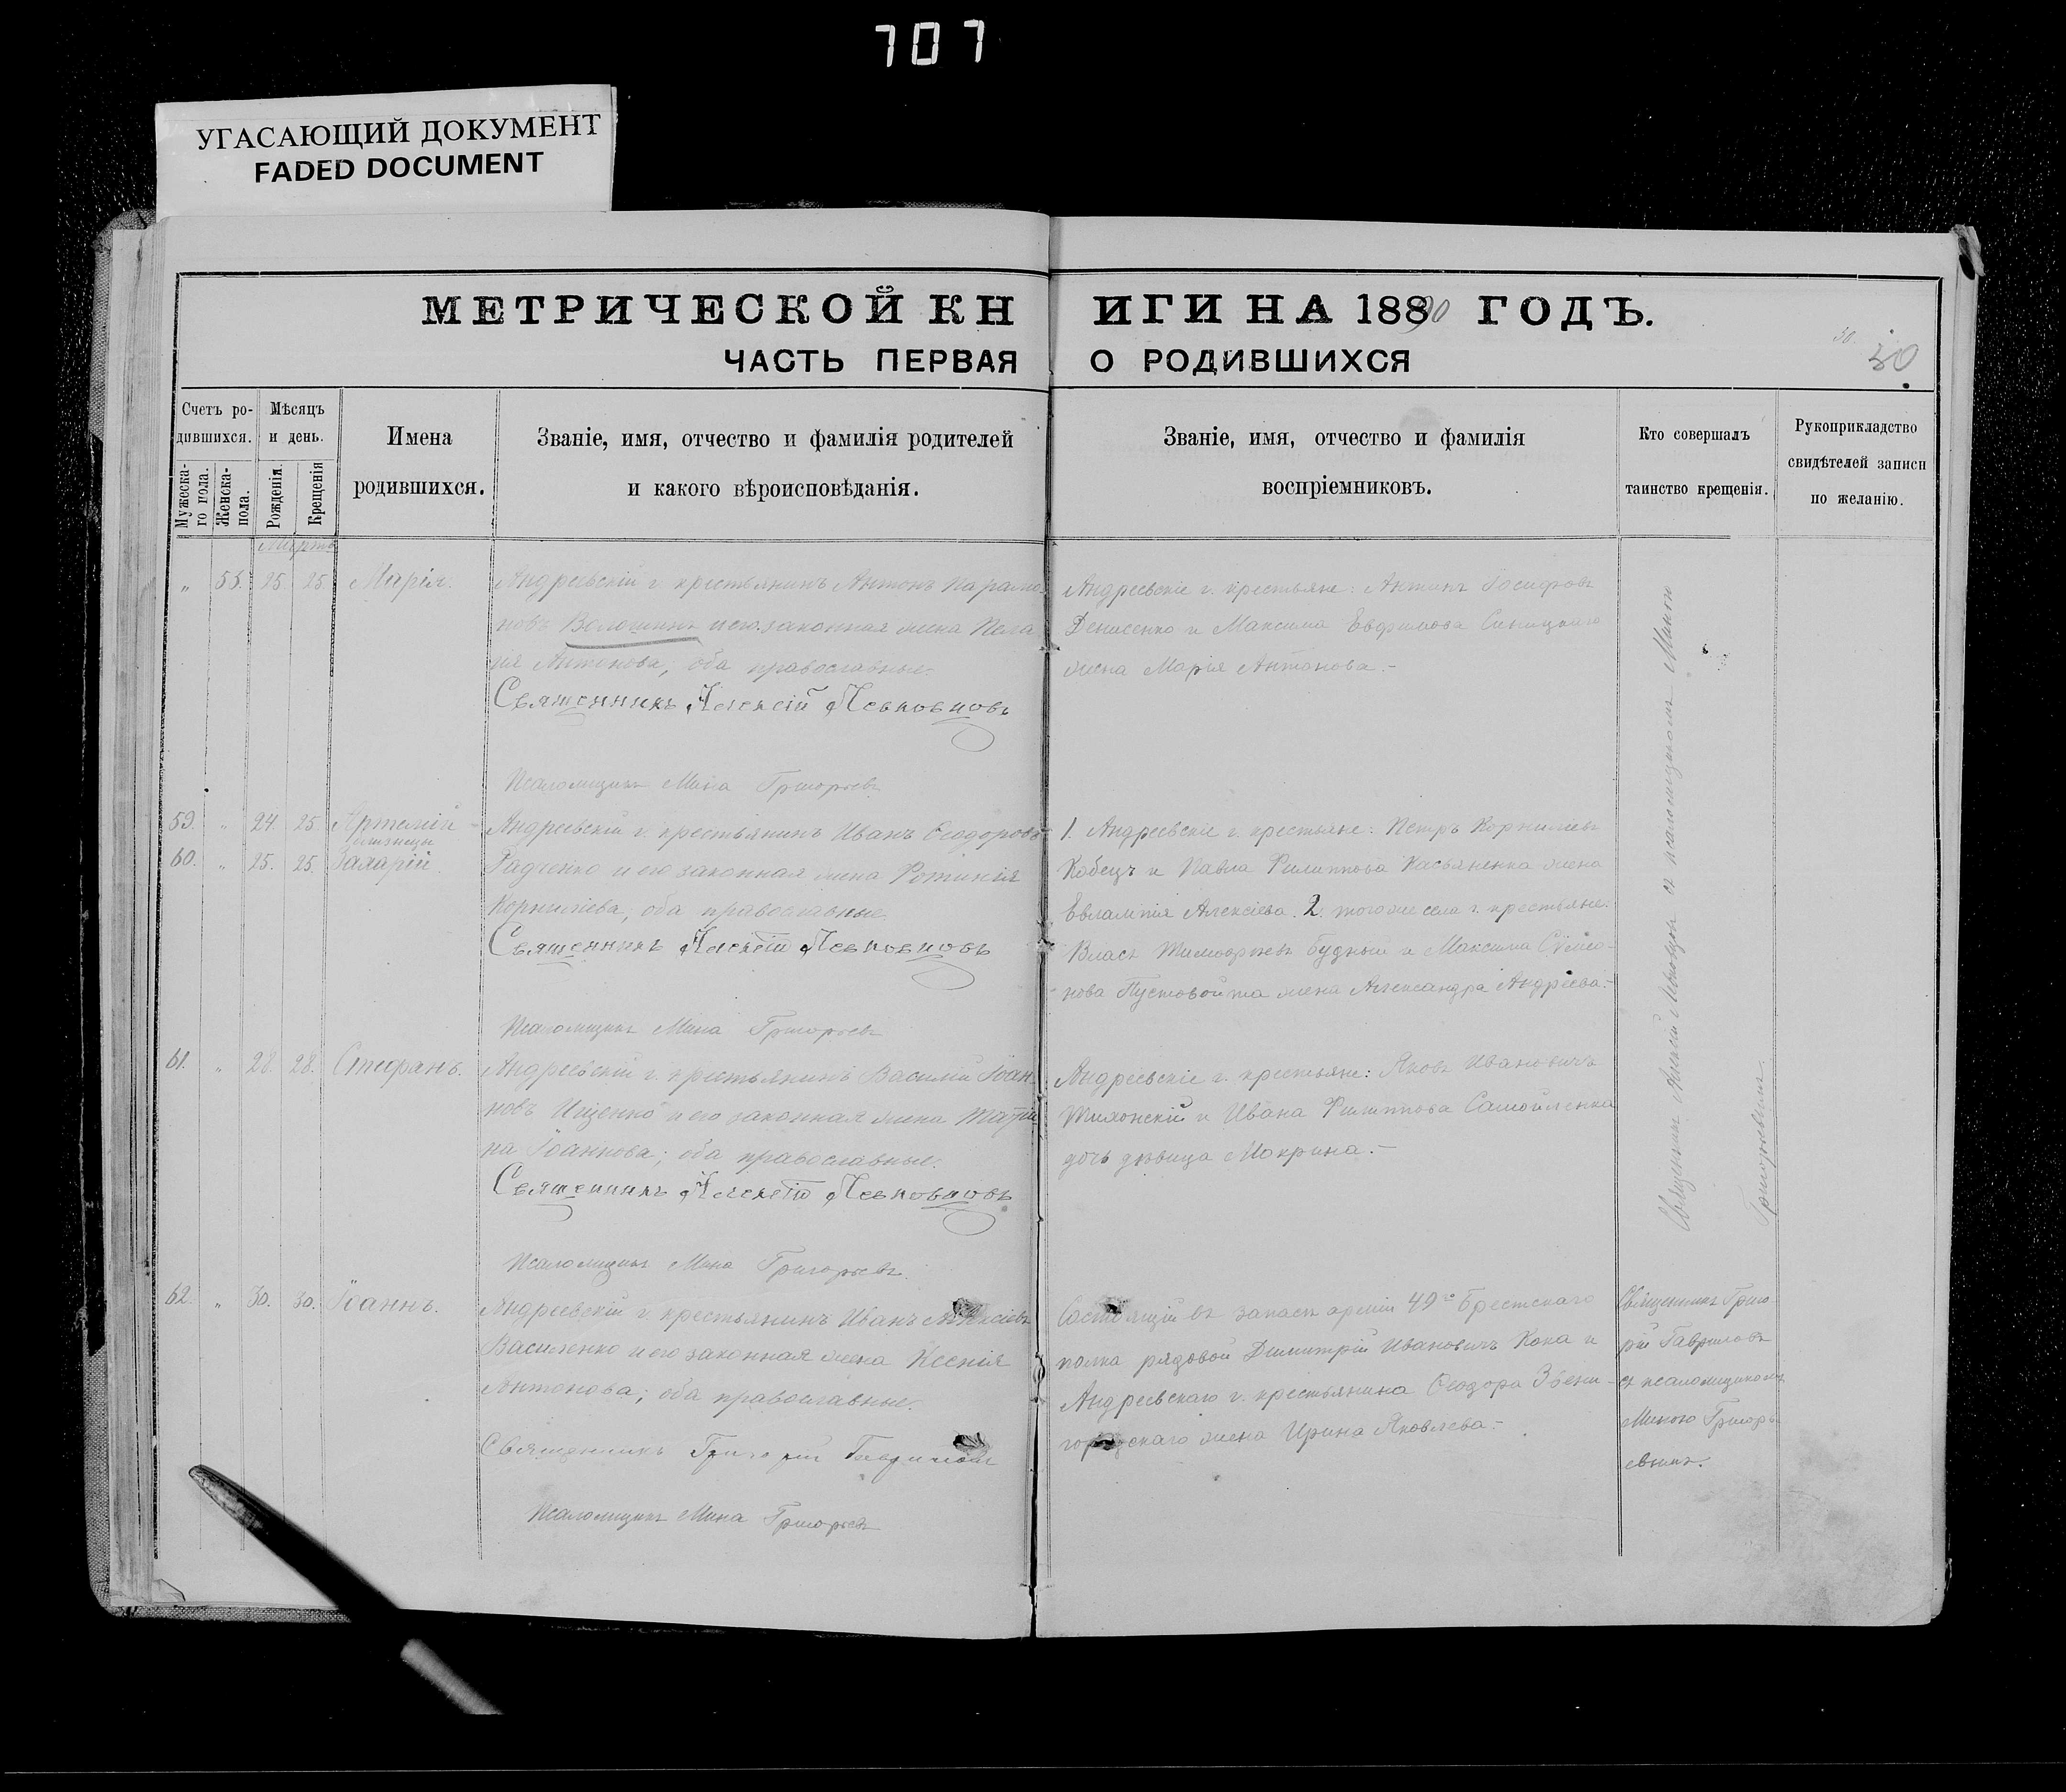 707
УГАСАЮЩИЙ ДОКУМЕНТ
FADED DOCUMENT
МЕТРИЧЕСКОЙ КНИГИ НА 1890 ГОДЪ.
ЧАСТЬ ПЕРВАЯ О РОДИВШИХСЯ
30.
30
Счетъ ро-
дившихся.
Мужеска-
го пола.
Женска-
пола.
Мѣсяцъ
и день.
Рожденія.
Крещенія
Имена
родившихся.
Званіе, имя, отчество и фамилія родителей
и какого вѣроисповѣданія.
Званіе, имя, отчество и фамилія
воспріемниковъ.
Кто совершалъ
таинство крещенія.
Рукоприкладство
свидѣтелей записи
по желанію.
Мартъ
„ 55. 25. 25. Марія.
Андреевскій г. крестьянинъ Антонъ Парамо-
новъ Волошинъ и его законная жена Пела-
гія Антонова; оба православные.
Священникъ Алексій Левковцовъ
Псаломщикъ Мина Григорьевъ
Андреевскіе г. крестьяне: Антонъ Іосифовъ
Денисенко и Максима Евфимова Синицкаго
жена Марія Антонова.-
59. „ 24. 25. Артемій
близнецы
60. „ 25. 25. Захарій.
Андреевскій г. крестьянинъ Иванъ Ѳеодоровъ
Радченко и его законная жена Фотинія
Корниліева; оба православные.
Священникъ Алексій Левковцовъ
Псаломщикъ Мина Григорьевъ
1. Андреевскіе г. крестьяне: Петръ Корниліевъ
Кобецъ и Павла Филиппова Касьяненка жена
Евлампія Алексіева. 2. того же села г. крестьяне:
Власъ Тимофеевъ Будный и Максима Сѵмео-
нова Пустовойта жена Александра Андреева.-
61. „ 28. 28. Стефанъ.
Андреевскій г. крестьянинъ Василій Іоан-
новъ Ищенко и его законная жена Татія-
на Іоаннова; оба православные.
Священникъ Алексій Левковцовъ
Псаломщикъ Мина Григорьевъ.
Андреевскіе г. крестьяне: Яковъ Ивановичъ
Тихонскій и Ивана Филиппова Самойленка
дочь дѣвица Макрина.-
Священникъ Алексій Левковцовъ съ псаломщикомъ Миною
Григорьевымъ.
62. „ 30. 30. Іоаннъ.
Андреевскій г. крестьянинъ Иванъ Алексіевъ
Василенко и его законная жена Ксенія
Антонова; оба православные.
Священникъ Григорій Гавриловъ
Псаломщикъ Мина Григорьевъ
Состоящій въ запасѣ арміи 49го Брестскаго
полка рядовой Димитрій Ивановичъ Кока и
Андреевскаго г. крестьянина Ѳеодора Звени-
городскаго жена Ирина Яковлева.-
Священникъ Григо-
рій Гавриловъ
съ псаломщикомъ
Миною Григорь-
евымъ.